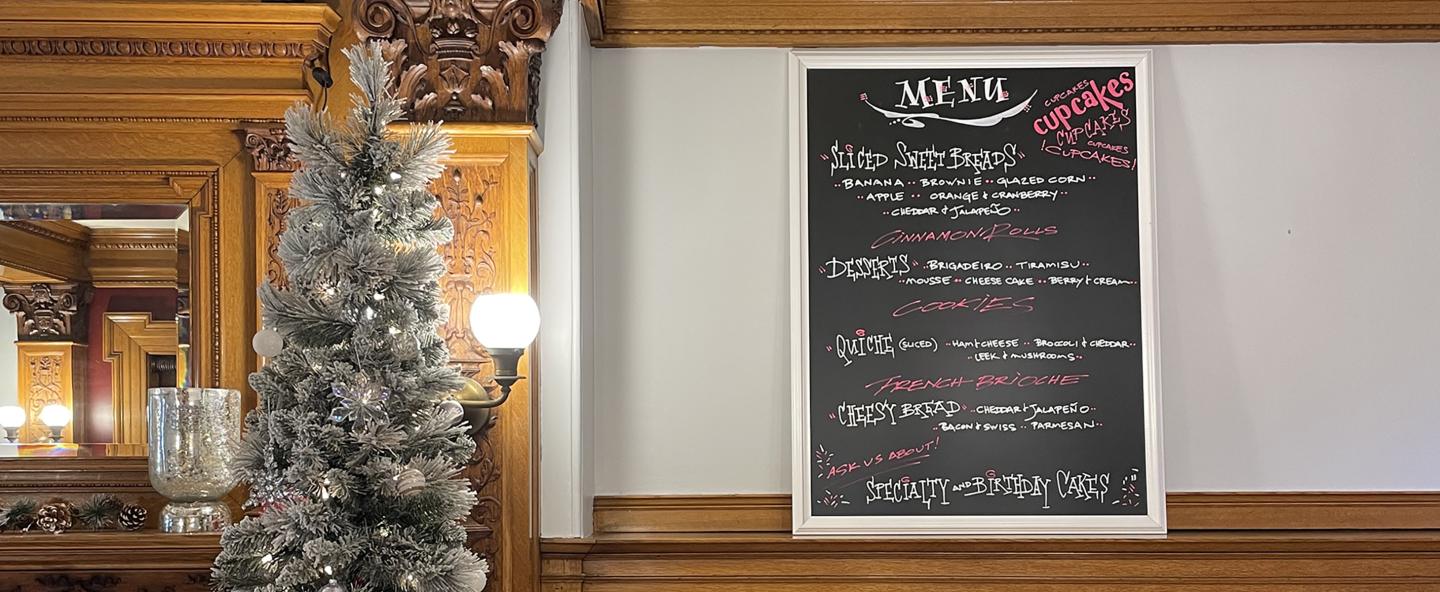 MENU
CUPCAKES
cupcakes
CUPCAKES
CUPCAKES
!CUPCAKES!
"SLICED SWEET BREADS"
BANANA •• BROWNIE •• GLAZED CORN ••
•• APPLE •• ORANGE & CRANBERRY ••
•• CHEDDAR & JALAPEÑO ••
CINNAMON ROLLS
"DESSERTS" •• BRIGADEIRO •• TIRAMISU ••
•• MOUSSE •• CHEESE CAKE •• BERRY & CREAM ••
COOKIES
"QUICHE (SLICED) •• HAM & CHEESE •• BROCCOLI & CHEDDAR ••
•• LEEK & MUSHROOMS ••
FRENCH BRIOCHE
"CHEESY BREAD" •• CHEDDAR & JALAPEÑO ••
•• BACON & SWISS •• PARMESAN ••
ASK US ABOUT!
SPECIALTY AND BIRTHDAY CAKES